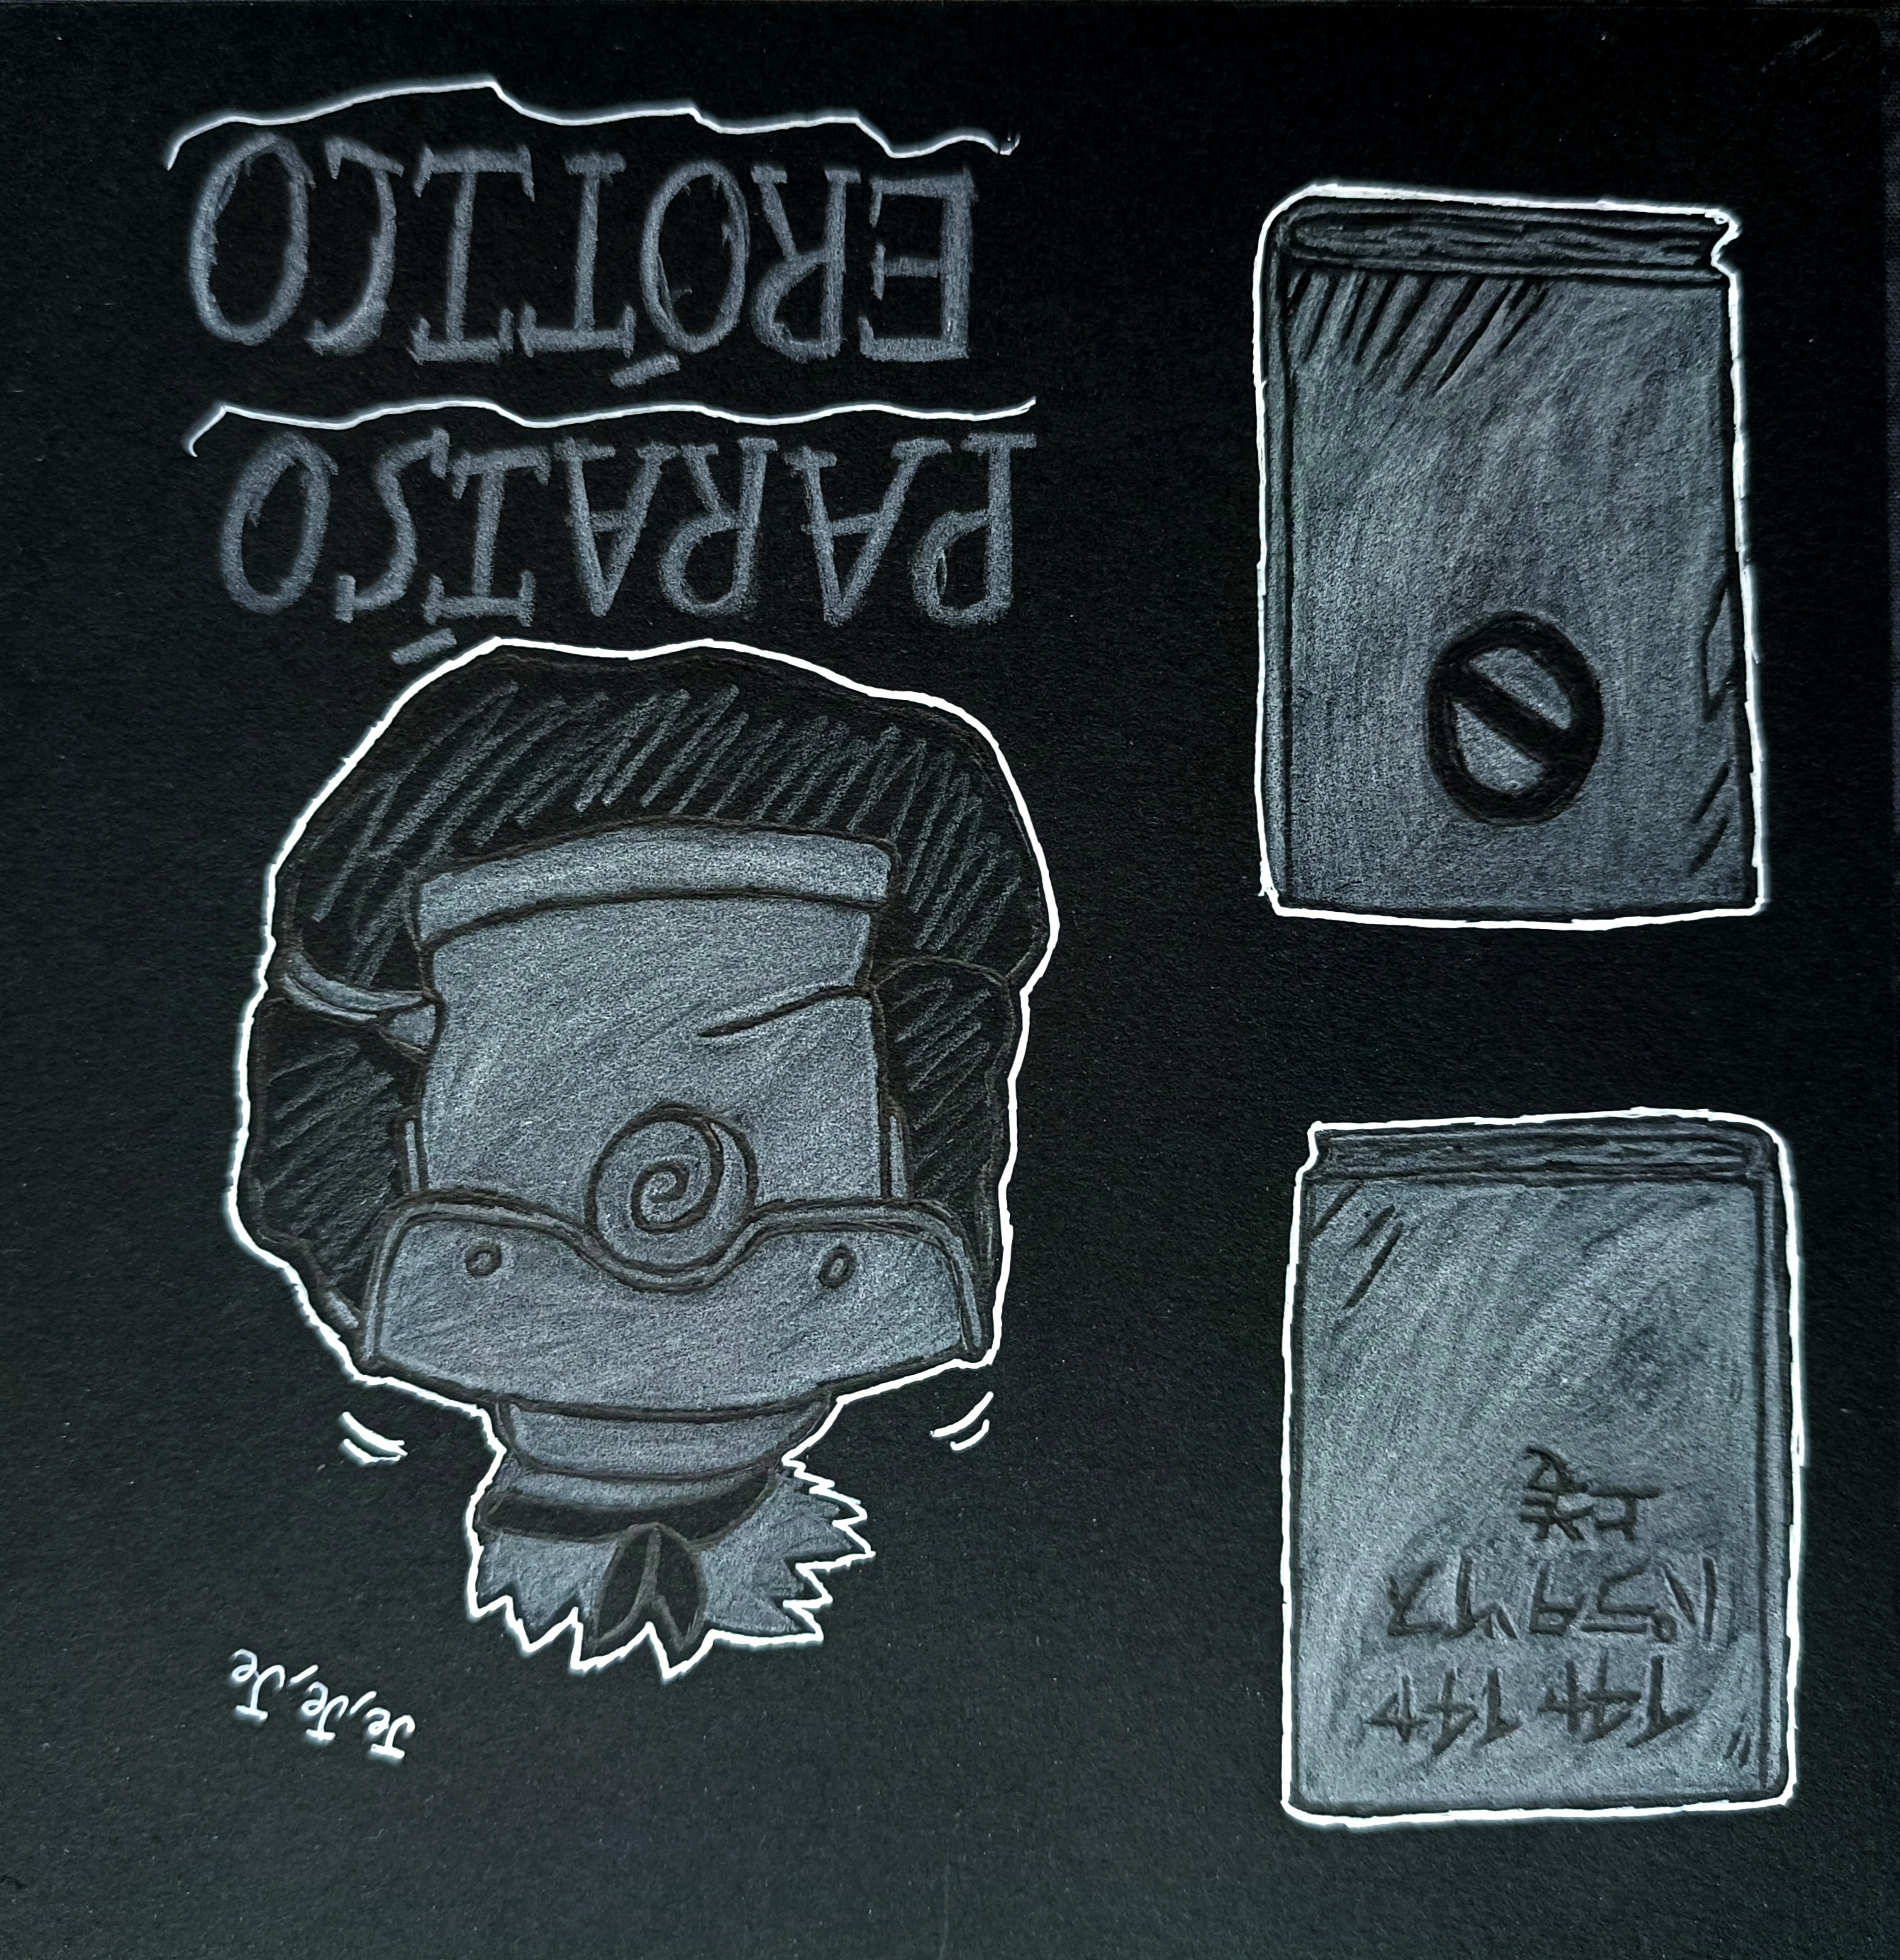 イチャイチャ
パラダイス
上巻
Je, Je, Je
PARAÍSO
ERÓTICO